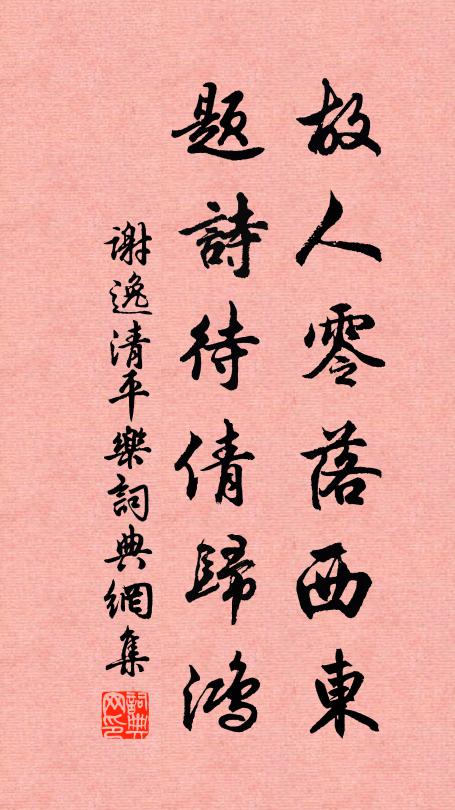 故人零落西東
題詩待倩歸鴻
謝逸清平樂詞典網集
詞典網印